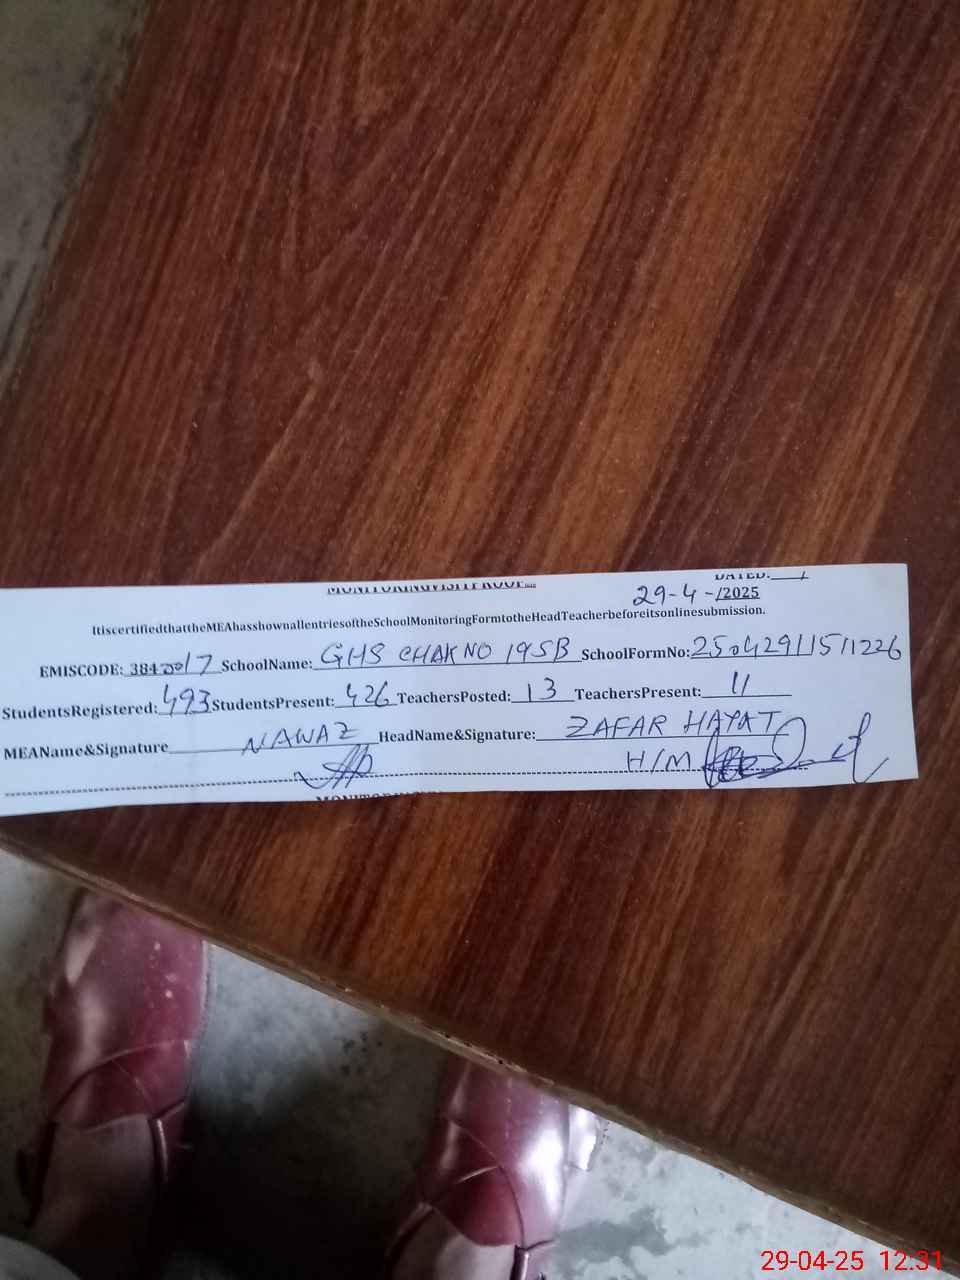 MONITORINGVISITPROOF
DATED:
29-4-/2025
ItiscertifiedthattheMEAhasshownallentriesoftheSchoolMonitoringFormtotheHeadTeacherbeforeitsonlinesubmission.
EMISCODE: 38420017 SchoolName: GHS CHAK NO 19SB SchoolFormNo: 25042911511226
StudentsRegistered: 493 StudentsPresent: 426 TeachersPosted: 13 TeachersPresent: 11
MEAName&Signature NAWAZ HeadName&Signature: ZAFAR HAYAT
H/M
29-04-25 12.31